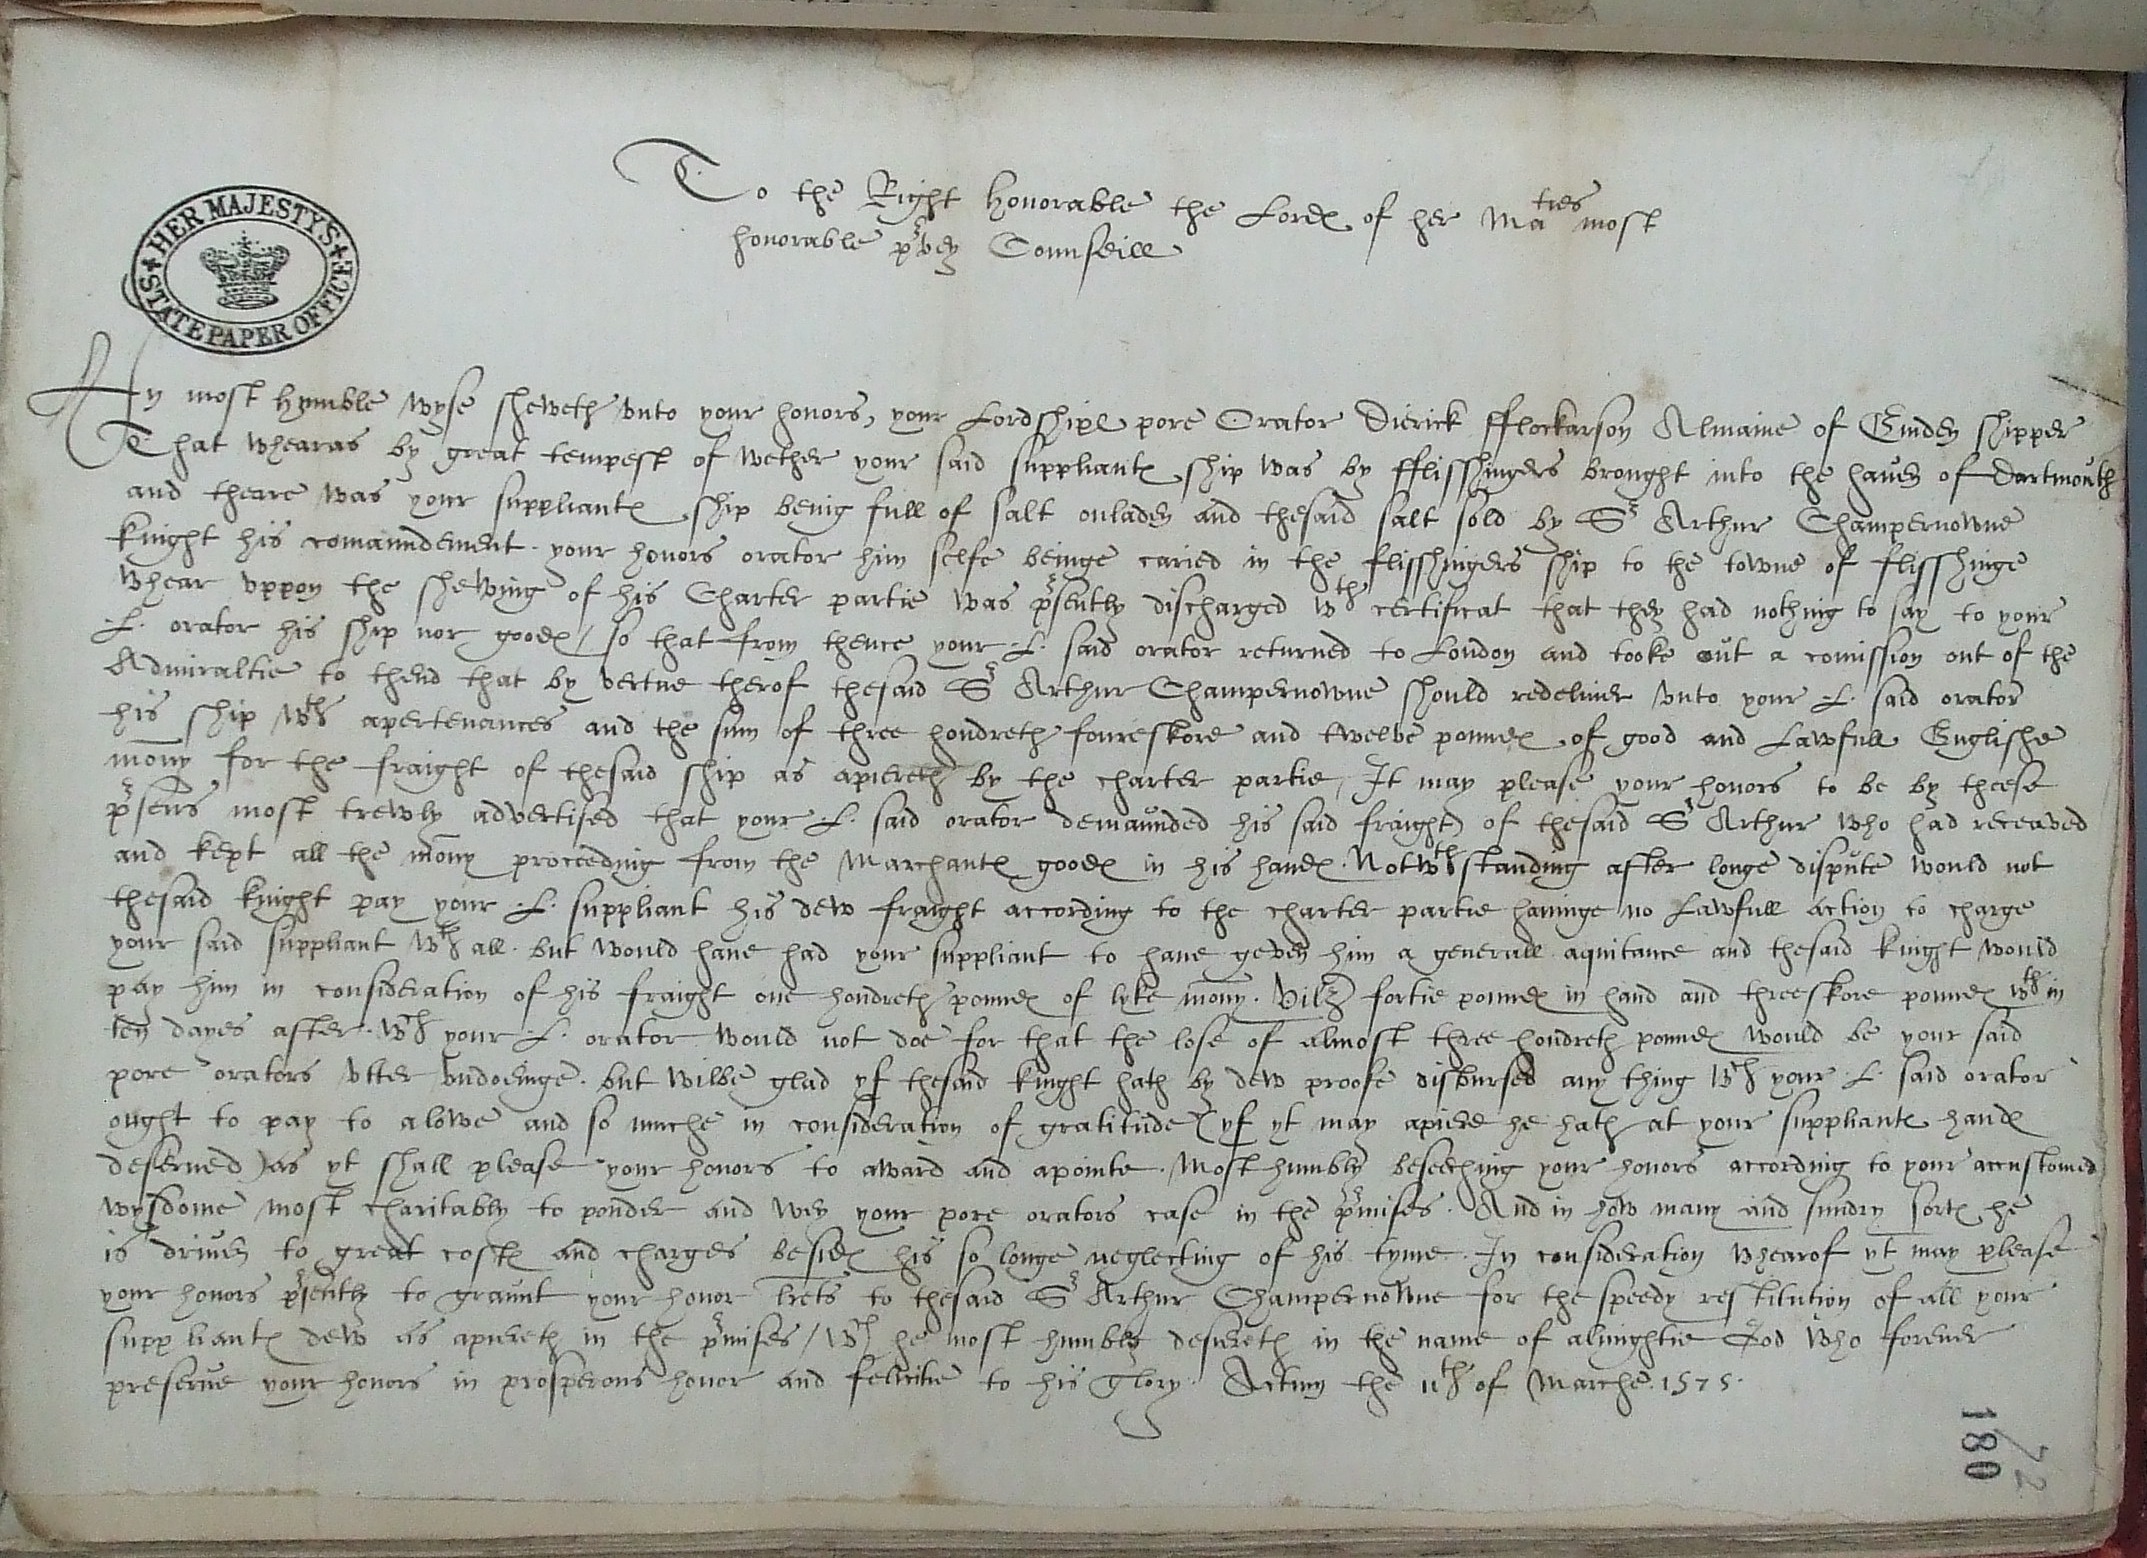 HER MAJESTYS
STATE PAPER OFFICE
To the Right honorable the Lordes of her Maties most
honorable pryvey Counseill
In most hvmble wyse sheweth vnto your honors, your Lordshipes pore Orator Dierick fflockarson Almaine of Emden shipper
That whearas by great tempest of wether your said suppliantes ship was by fflisshingers brought into the hauen of Dartmouth
and theare was your suppliantes ship being full of salt onladen and thesaid salt sold by Sr Arthur Champernowne
knight his comaundement. your honors orator him selfe beinge caried in the flisshingers ship to the towne of flisshinge
whear vppon the shewing of his Charter partie was presently discharged wth certificat that they had nothing to say to your
L. orator his ship nor goodes / so that from thence your L. said orator returned to London and tooke out a comission out of the
Admiraltie to thend that by vertue therof thesaid Sr Arthur Champernowne should redeliuer vnto your L. said orator
his ship wth apertenances and the sum of three hondreth foureskore and twelve poundes of good and Lawfull Englishe
mony for the fraight of thesaid ship as apiereth by the charter partie, It may please your honors to be by theese
presents most trewly advertised that your L. said orator demaunded his said fraight of thesaid Sr Arthur who had receaved
and kept all the mony proceeding from the Marchantes goodes in his handes. Notwthstanding after longe dispute would not
thesaid knight pay your L. suppliant his dew fraight according to the charter partie hauinge no Lawfull action to charge
your said suppliant wth all. but would haue had your suppliant to haue geven him a generall aquitance and thesaid knight would
pay him in consideration of his fraight one hondreth poundes of lyke mony. Vilz fortie poundes in hand and threeskore poundes wth in
ten dayes after. wch your L. orator would not doe for that the lose of almost three hondreth poundes would be your said
pore orators vtter vndoeinge. but wilbe glad yf thesaid knight hath by dew proofe disbursed any thing wch your L. said orator
ought to pay to alowe and so muche in consideration of gratitude (yf yt may apiere he hath at your suppliantes handes
deserued) as yt shall please your honors to award and apointe. Most humbly beseeching your honors according to your accustomed
wysdome most charitably to ponder and wey your pore orators case in the premises. And in how many and sundry sortes he
is driuen to great costes and charges besides his so longe neglecting of his tyme. In consideration whearof yt may please
your honors presently to graunt your honor lrets to thesaid Sr Arthur Champernowne for the speedy restitution of all your
suppliantes dew as apiereth in the premises / wch he most humbly desiereth in the name of almightie God who foreuer
preserue your honors in prosperous honor and felicitie to his glory. Actum the 11th of Marche. 1575.
180
72